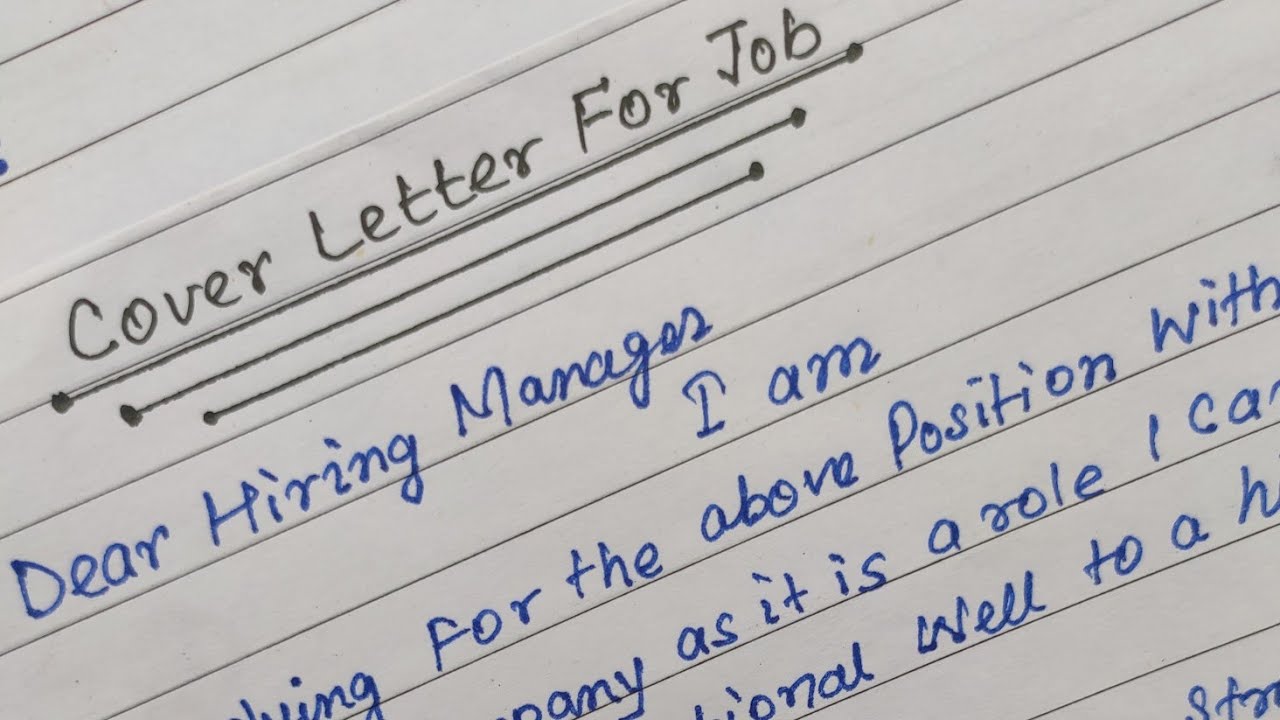 Cover Letter For Job
Dear Hiring Manager
I am
For the above Position with
as it is a role I can
well to a